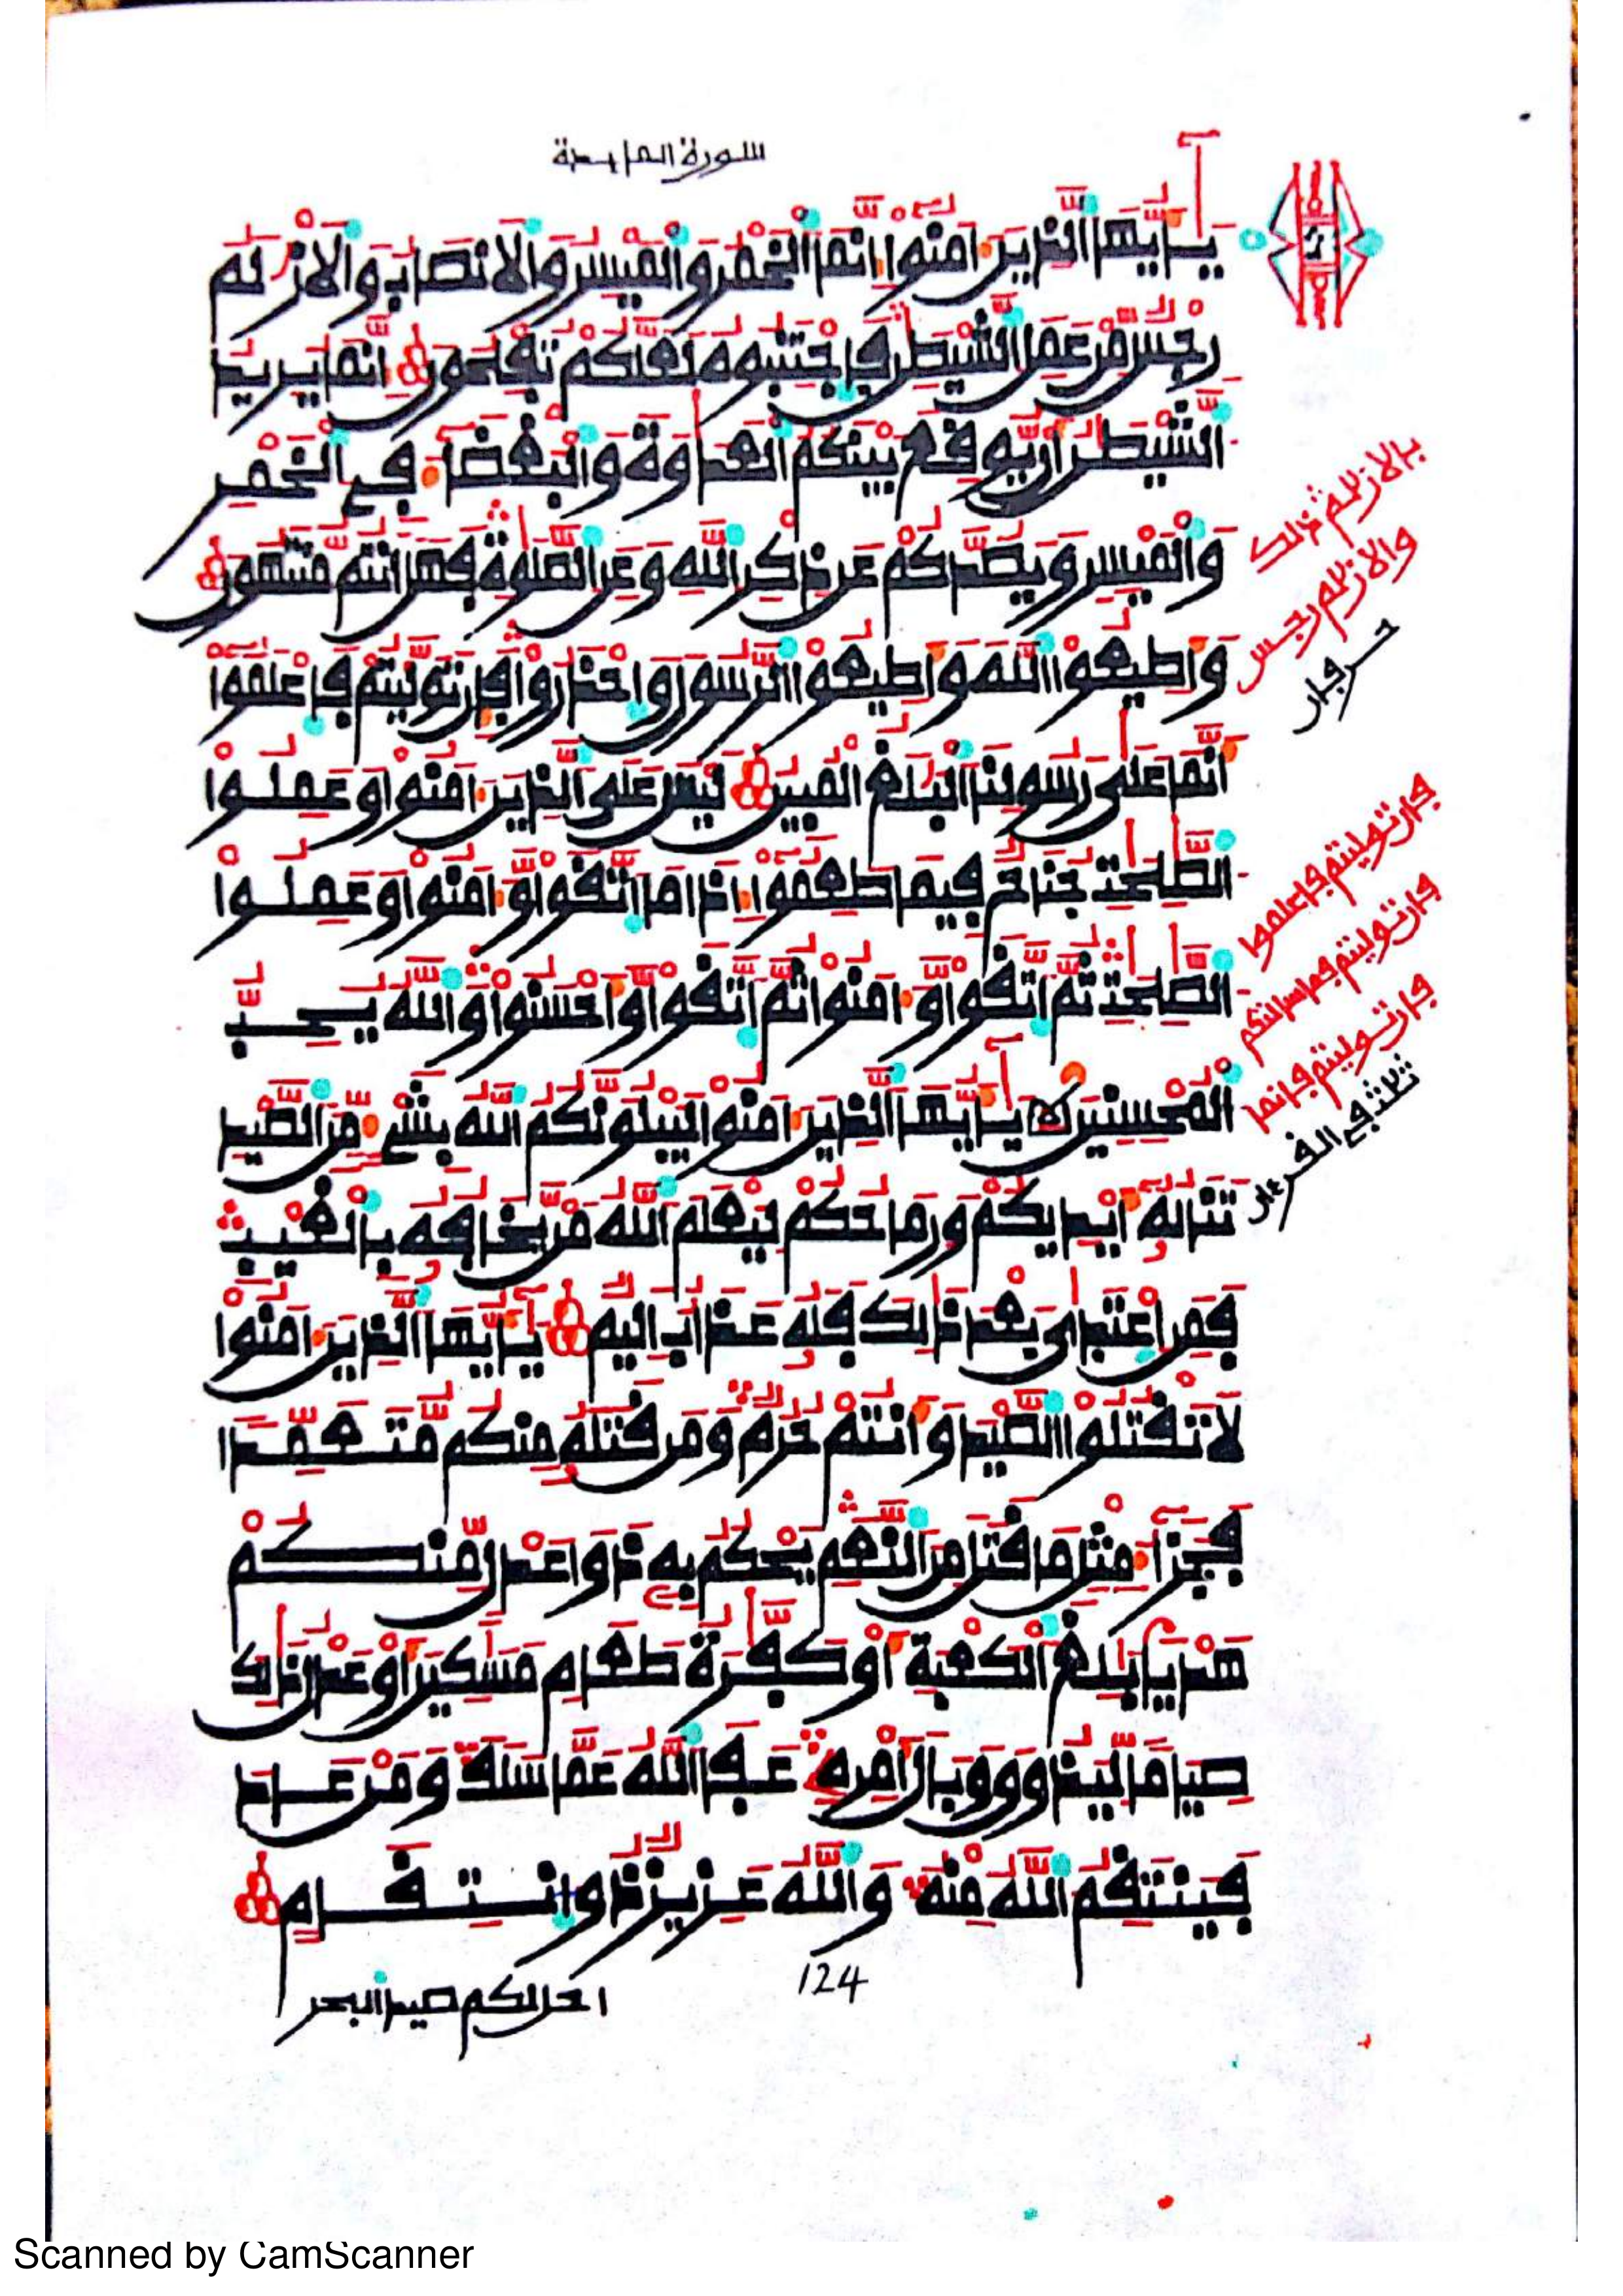 سورة المايدة
يَـٰٓأَيُّهَا ٱلذِينَ ءَامَنُوٓا۟ إِنَّمَا ٱلْخَمْرُ وَٱلْمَيْسِرُ وَٱلَانصَابُ وَٱلَازْلَٰمُ
رِجْسٌ مِّنْ عَمَلِ ٱلشَّيْطَٰنِ فَٱجْتَنِبُوهُ لَعَلَّكُمْ تُفْلِحُونَ إِنَّمَا يُرِيدُ
ٱلشَّيْطَٰنُ أَنْ يُّوقِعَ بَيْنَكُمُ ٱلْعَدَٰوَةَ وَٱلْبَغْضَآءَ فِے ٱلْخَمْرِ
وَٱلْمَيْسِرِ وَيَصُدَّكُمْ عَن ذِكْرِ ٱللَّهِ وَعَنِ ٱلصَّلَوٰةِ فَهَلَ اَنتُم مُّنتَهُونَ
وَأَطِيعُوا۟ ٱللَّهَ وَأَطِيعُوا۟ ٱلرَّسُولَ وَٱحْذَرُوا۟ فَإِن تَوَلَّيْتُمْ فَٱعْلَمُوٓا۟
أَنَّمَا عَلَىٰ رَسُولِنَا ٱلْبَلَٰغُ ٱلْمُبِينُ لَيْسَ عَلَى ٱلذِينَ ءَامَنُوا۟ وَعَمِلُوا۟
ٱلصَّٰلِحَٰتِ جُنَاحٌ فِيمَا طَعِمُوٓا۟ إِذَا مَا ٱتَّقَوا۟ وَّءَامَنُوا۟ وَعَمِلُوا۟
ٱلصَّٰلِحَٰتِ ثُمَّ ٱتَّقَوا۟ وَّءَامَنُوا۟ ثُمَّ ٱتَّقَوا۟ وَّأَحْسَنُوا۟ وَٱللَّهُ يُحِبُّ
ٱلْمُحْسِنِينَ يَـٰٓأَيُّهَا ٱلذِينَ ءَامَنُوا۟ لَيَبْلُوَنَّكُمُ ٱللَّهُ بِشَےْءٍ مِّنَ ٱلصَّيْدِ
تَنَالُهُۥٓ أَيْدِيكُمْ وَرِمَاحُكُمْ لِيَعْلَمَ ٱللَّهُ مَنْ يَّخَافُهُۥ بِٱلْغَيْبِ
فَمَنِ ٱعْتَدَىٰ بَعْدَ ذَٰلِكَ فَلَهُۥ عَذَابٌ اَلِيمٌ يَـٰٓأَيُّهَا ٱلذِينَ ءَامَنُوا۟
لَا تَقْتُلُوا۟ ٱلصَّيْدَ وَأَنتُمْ حُرُمٌ وَمَن قَتَلَهُۥ مِنكُم مُّتَعَمِّدًا
فَجَزَآءُ مِثْلِ مَا قَتَلَ مِنَ ٱلنَّعَمِ يَحْكُمُ بِهِۦ ذَوَا عَدْلٍ مِّنكُمْ
هَدْيًۢا بَٰلِغَ ٱلْكَعْبَةِ أَوْ كَفَّٰرَةُ طَعَامِ مَسَٰكِينَ أَوْ عَدْلُ ذَٰلِكَ
صِيَامًا لِّيَذُوقَ وَبَالَ أَمْرِهِۦ عَفَا ٱللَّهُ عَمَّا سَلَفَ وَمَنْ عَادَ
فَيَنتَقِمُ ٱللَّهُ مِنْهُ وَٱللَّهُ عَزِيزٌ ذُو ٱنتِقَامٍ
بالازلم ذلك
والازلم رجس
حرفان
فان توليتم فاعلموا
فان توليتم فما سالتكم
فان توليتم فإنما
ثلث في القرءان
124
احل لكم صيد البحر
Scanned by CamScanner